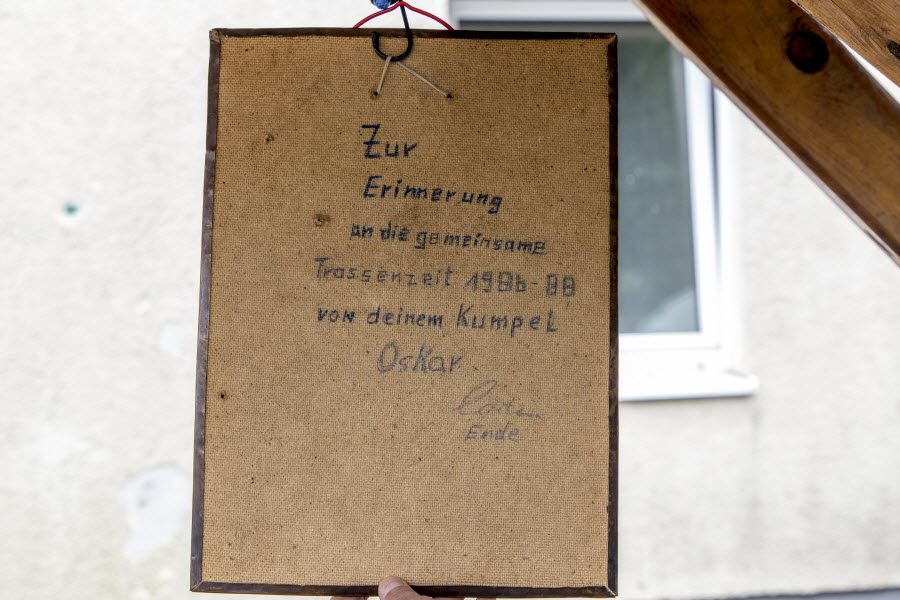 Zur
Erinnerung
an die gemeinsame
Trassenzeit 1986-88
von deinem Kumpel
Oskar.
Ende